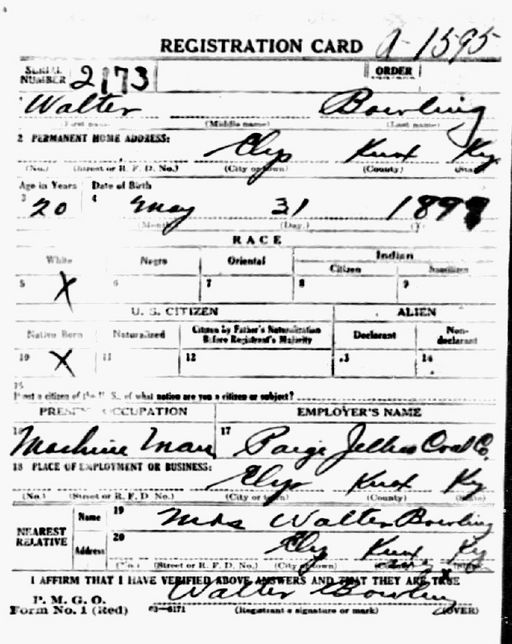 REGISTRATION CARD A-1595
SERIAL NUMBER 2173 ORDER
Walter Bowling
(First name) (Middle name) (Last name)
2 PERMANENT HOME ADDRESS:
Elys Knox Ky
(No.) (Street or R. F. D. No.) (City or town) (County) (State)
Age in Years Date of Birth
3 20 4 May 31
(Month) (Day.)
RACE
White Negro Oriental Indian
Citizen
5 X 6 7 8 9
U. S. CITIZEN ALIEN
Native Born Naturalized Citizen by Father's Naturalization Before Registrant's Majority Declarant Non-declarant
10 X 11 12 13 14
15
If not a citizen of the U. S., of what nation are you a citizen or subject?
PRESENT OCCUPATION EMPLOYER'S NAME
16 Machine Man 17 Paige Jellico Coal Co.
18 PLACE OF EMPLOYMENT OR BUSINESS:
Elys Knox Ky
(No.) (Street or R. F. D. No.) (City or town) (County) (State)
NEAREST RELATIVE Name 19 Mrs Walter Bowling
Address 20 Ely Knox Ky
(No.) (Street or R. F. D. No.) (City or town)
I AFFIRM THAT I HAVE VERIFIED ABOVE ANSWERS AND THAT THEY ARE TRUE
P. M. G. O.
Form No. 1 (Red) 03-6171 Walter Bowling
(Registrant's signature or mark) (OVER)